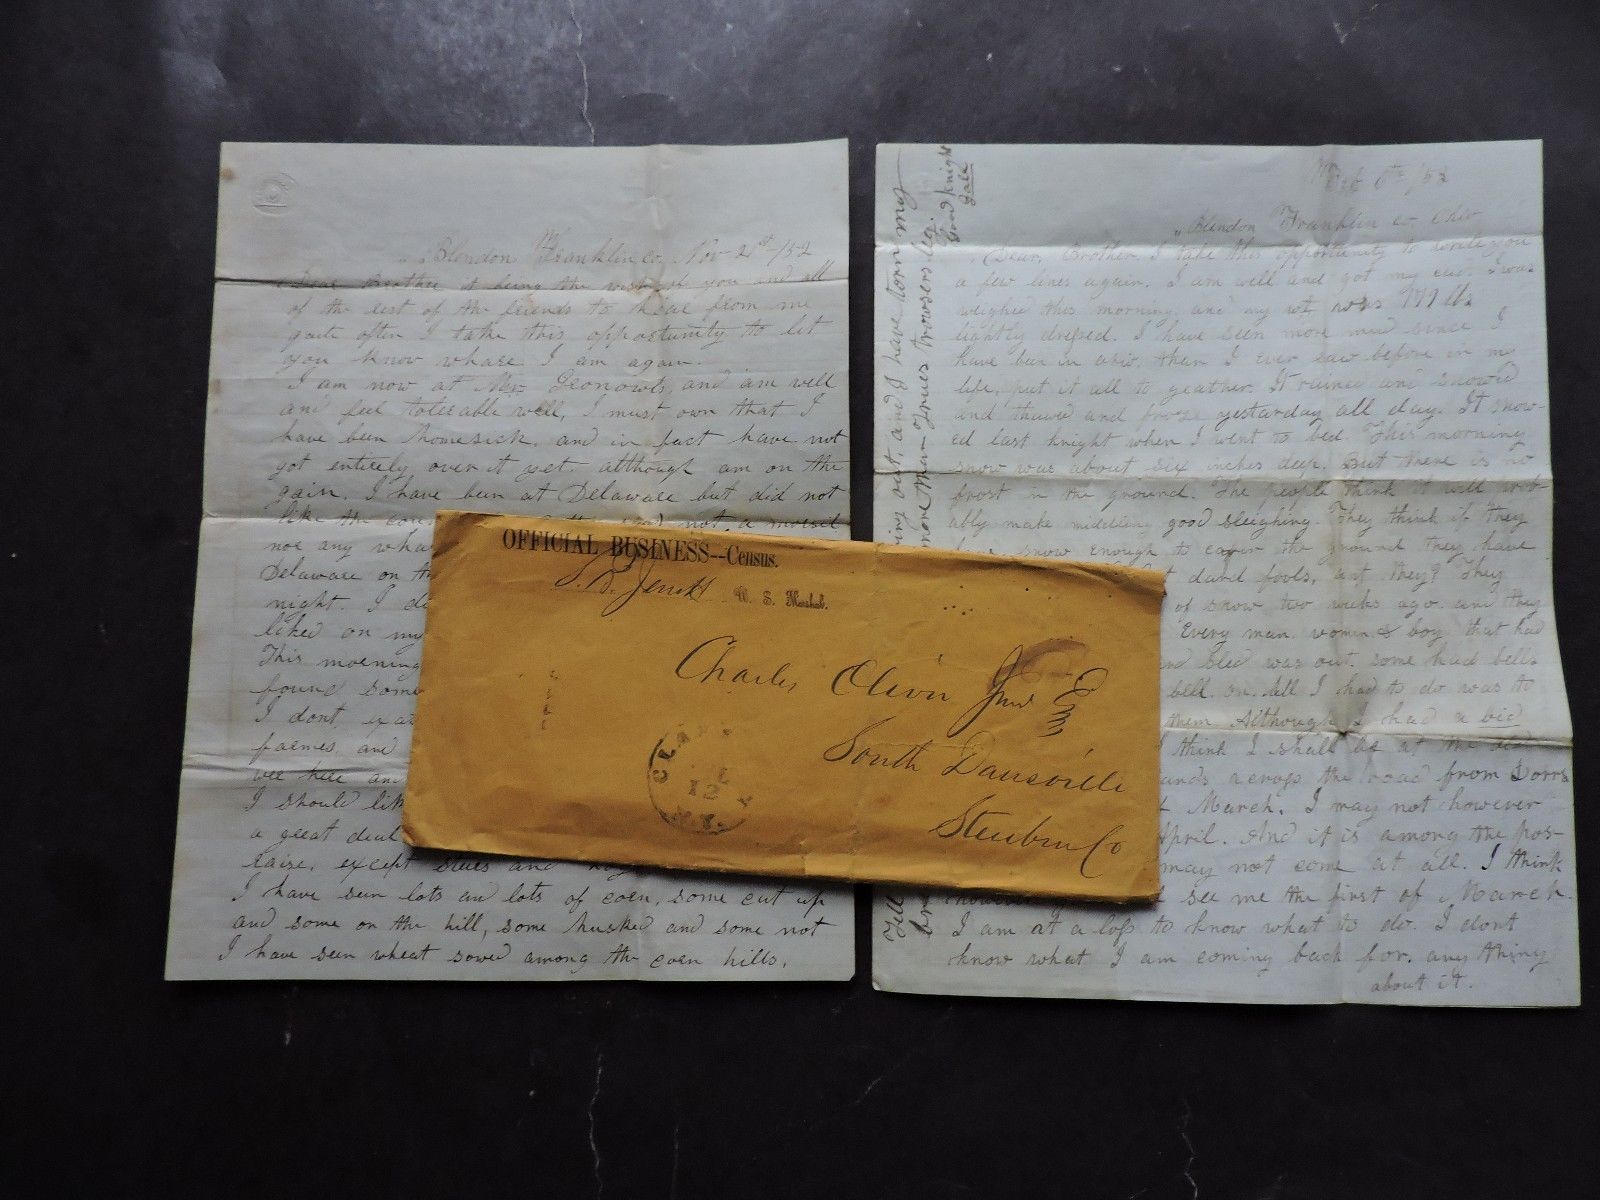 Blendon Franklin co. Nov 21st /52
Dear Brother it being the wish of you and all
of the rest of the friends to hear from me
quite often I take this opportunity to let
you know whare I am again.
I am now at Mr. and am well
and feel tolerable well, I must own that I
have been homesick. and in fact have not
got entirely over it yet. although am on the
gain. I have been at Delaware but did not
like the not, a morsil
nor any wha
Delaware on th
night. I d
liked on my
This morning
found some
I dont,
farmes, and
here an
I should lik
a great deal
raise, except and
I have seen lots an lots of corn, some cut up
and some on the hill, some husked and some not
I have seen wheat sowed among the corn hills.
OFFICIAL BUSINESS--Census.
U. S. Marshal.
Charles Oliver Jnr E
South Dansville
Steuben Co
12
N.Y.
/52
Blendon Franklin co Ohio
Dear, Brother, I take this opportunity to write you
a few lines again. I am well and got my I was
weighed this morning and my wt was 177 lbs
lightly dressed. I have seen more mud since I
have ben in than I ever saw before in my
life, put it all to geather. It rained and snowed
and thawed and froze yestarday all day. It snow-
ed last knight when I went to bed. This morning
snow was about six inches deep. But there is no
frost in the ground. The people think it will prob-
ably make middling good sleighing. They think if they
have snow enough to cover the ground they have
dard fools, ant they? They
of snow two weeks ago. and they
Every man. women & boy that had
sled was out. some had bells
bell on. All I had to do was to
them Although I had a bid
think I shall be at the old
across the road from Dorrs
March. I may not however
April. And it is among the pos-
may not come at all. I think
however see me the first of March.
I am at a loss to know what to do. I dont
know what I am coming back for. any thing
about it.
Tell out, and I have torn my
more than Trues trowsers leg.
Good knight